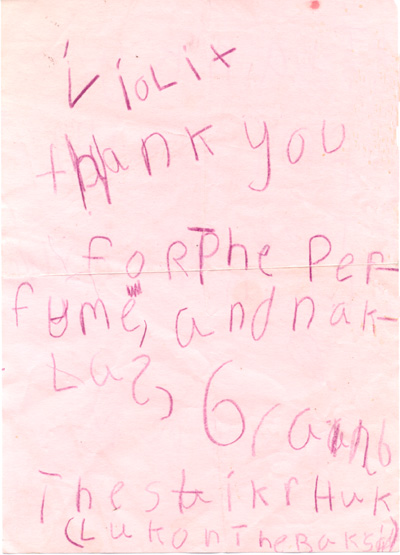 violit
thank you
for the per-
fume, and nak-
Las,
The straik r Huk
(Luk on the Baksid)